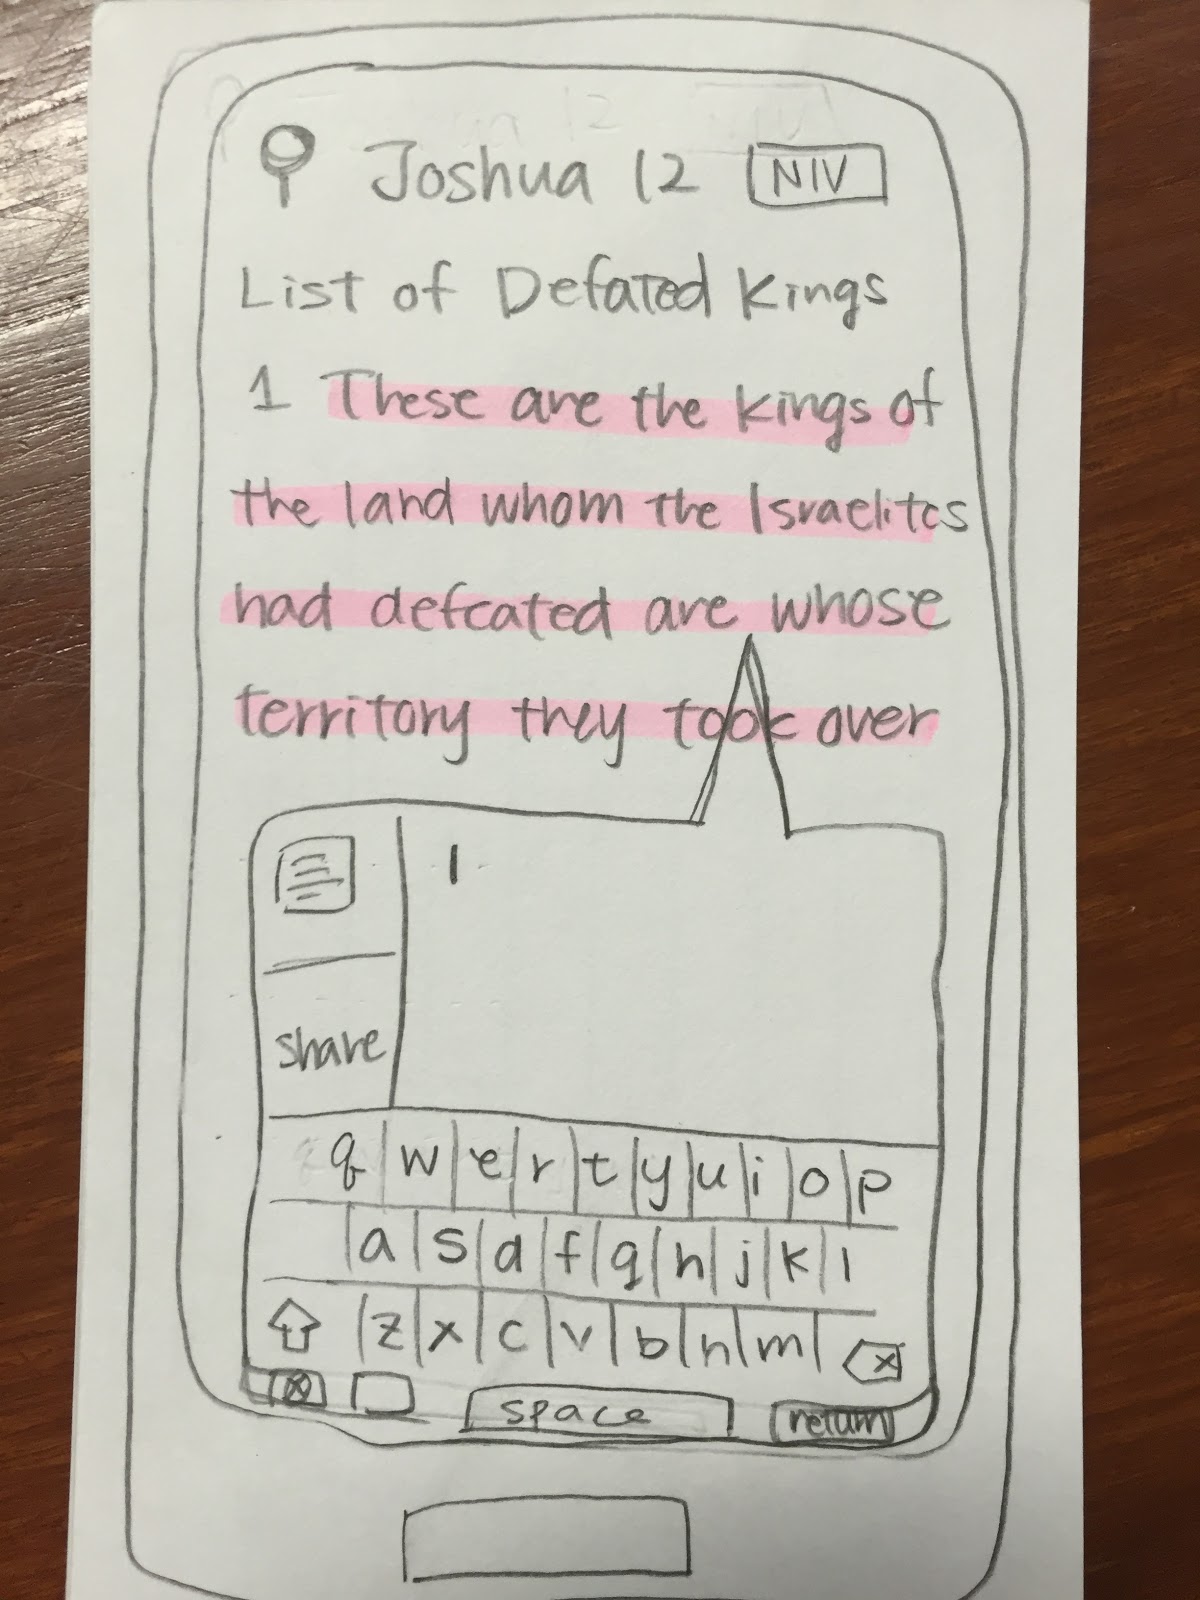 Joshua 12 NIV
List of Defated Kings
1 These are the kings of
the land whom the Israelites
had defeated are whose
territory they took over
share
q w e r t y u i o p
a s d f g h j k l
z x c v b n m x
space return